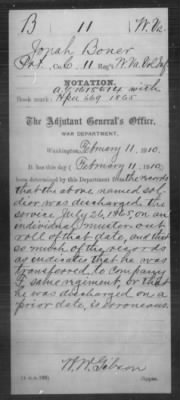 B 11 W.Va.
Josiah Boner
Pvt., Co. C 11 Reg't W. Va. Vol. Inf.
NOTATION.
A.G. 1615614 with
Book mark: Hper 669 1865
The Adjutant General's Office,
WAR DEPARTMENT,
Washington, February 11, 1910.
It has this day, February 11, 1910,
been determined by this Department from the records
that the above named sol-
dier was discharged the
service July 26, 1865, on an
individual muster out
roll of that date, and that
so much of the records
as indicates that he was
transferred to Company
F, same regiment, or that
he was discharged on a
prior date, is erroneous.
W. W. Gibson
Copyist.